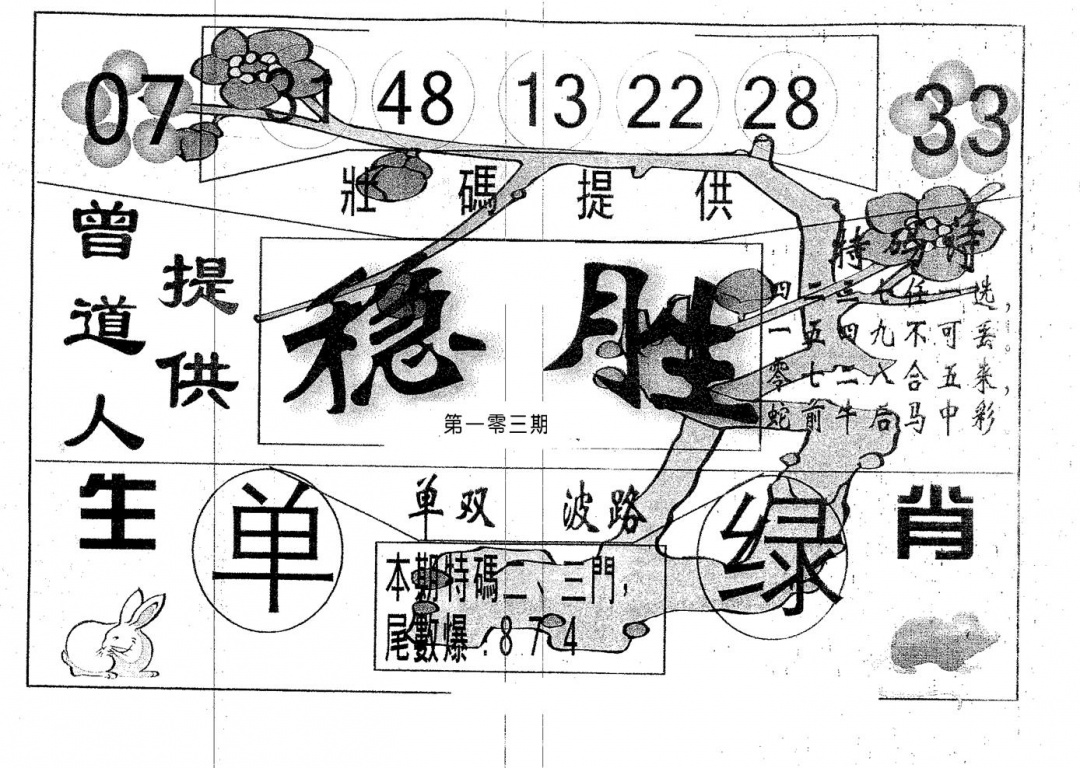 07 31 48 13 22 28 33
壯碼提供
曾道人
提供
稳胜
第一零三期
特码诗
四二三七任一选，
一五四九不可丢。
零七二八合五来，
蛇前牛后马中彩
生肖
单
单双 波路
绿
本期特碼二、三門，
尾數爆：874